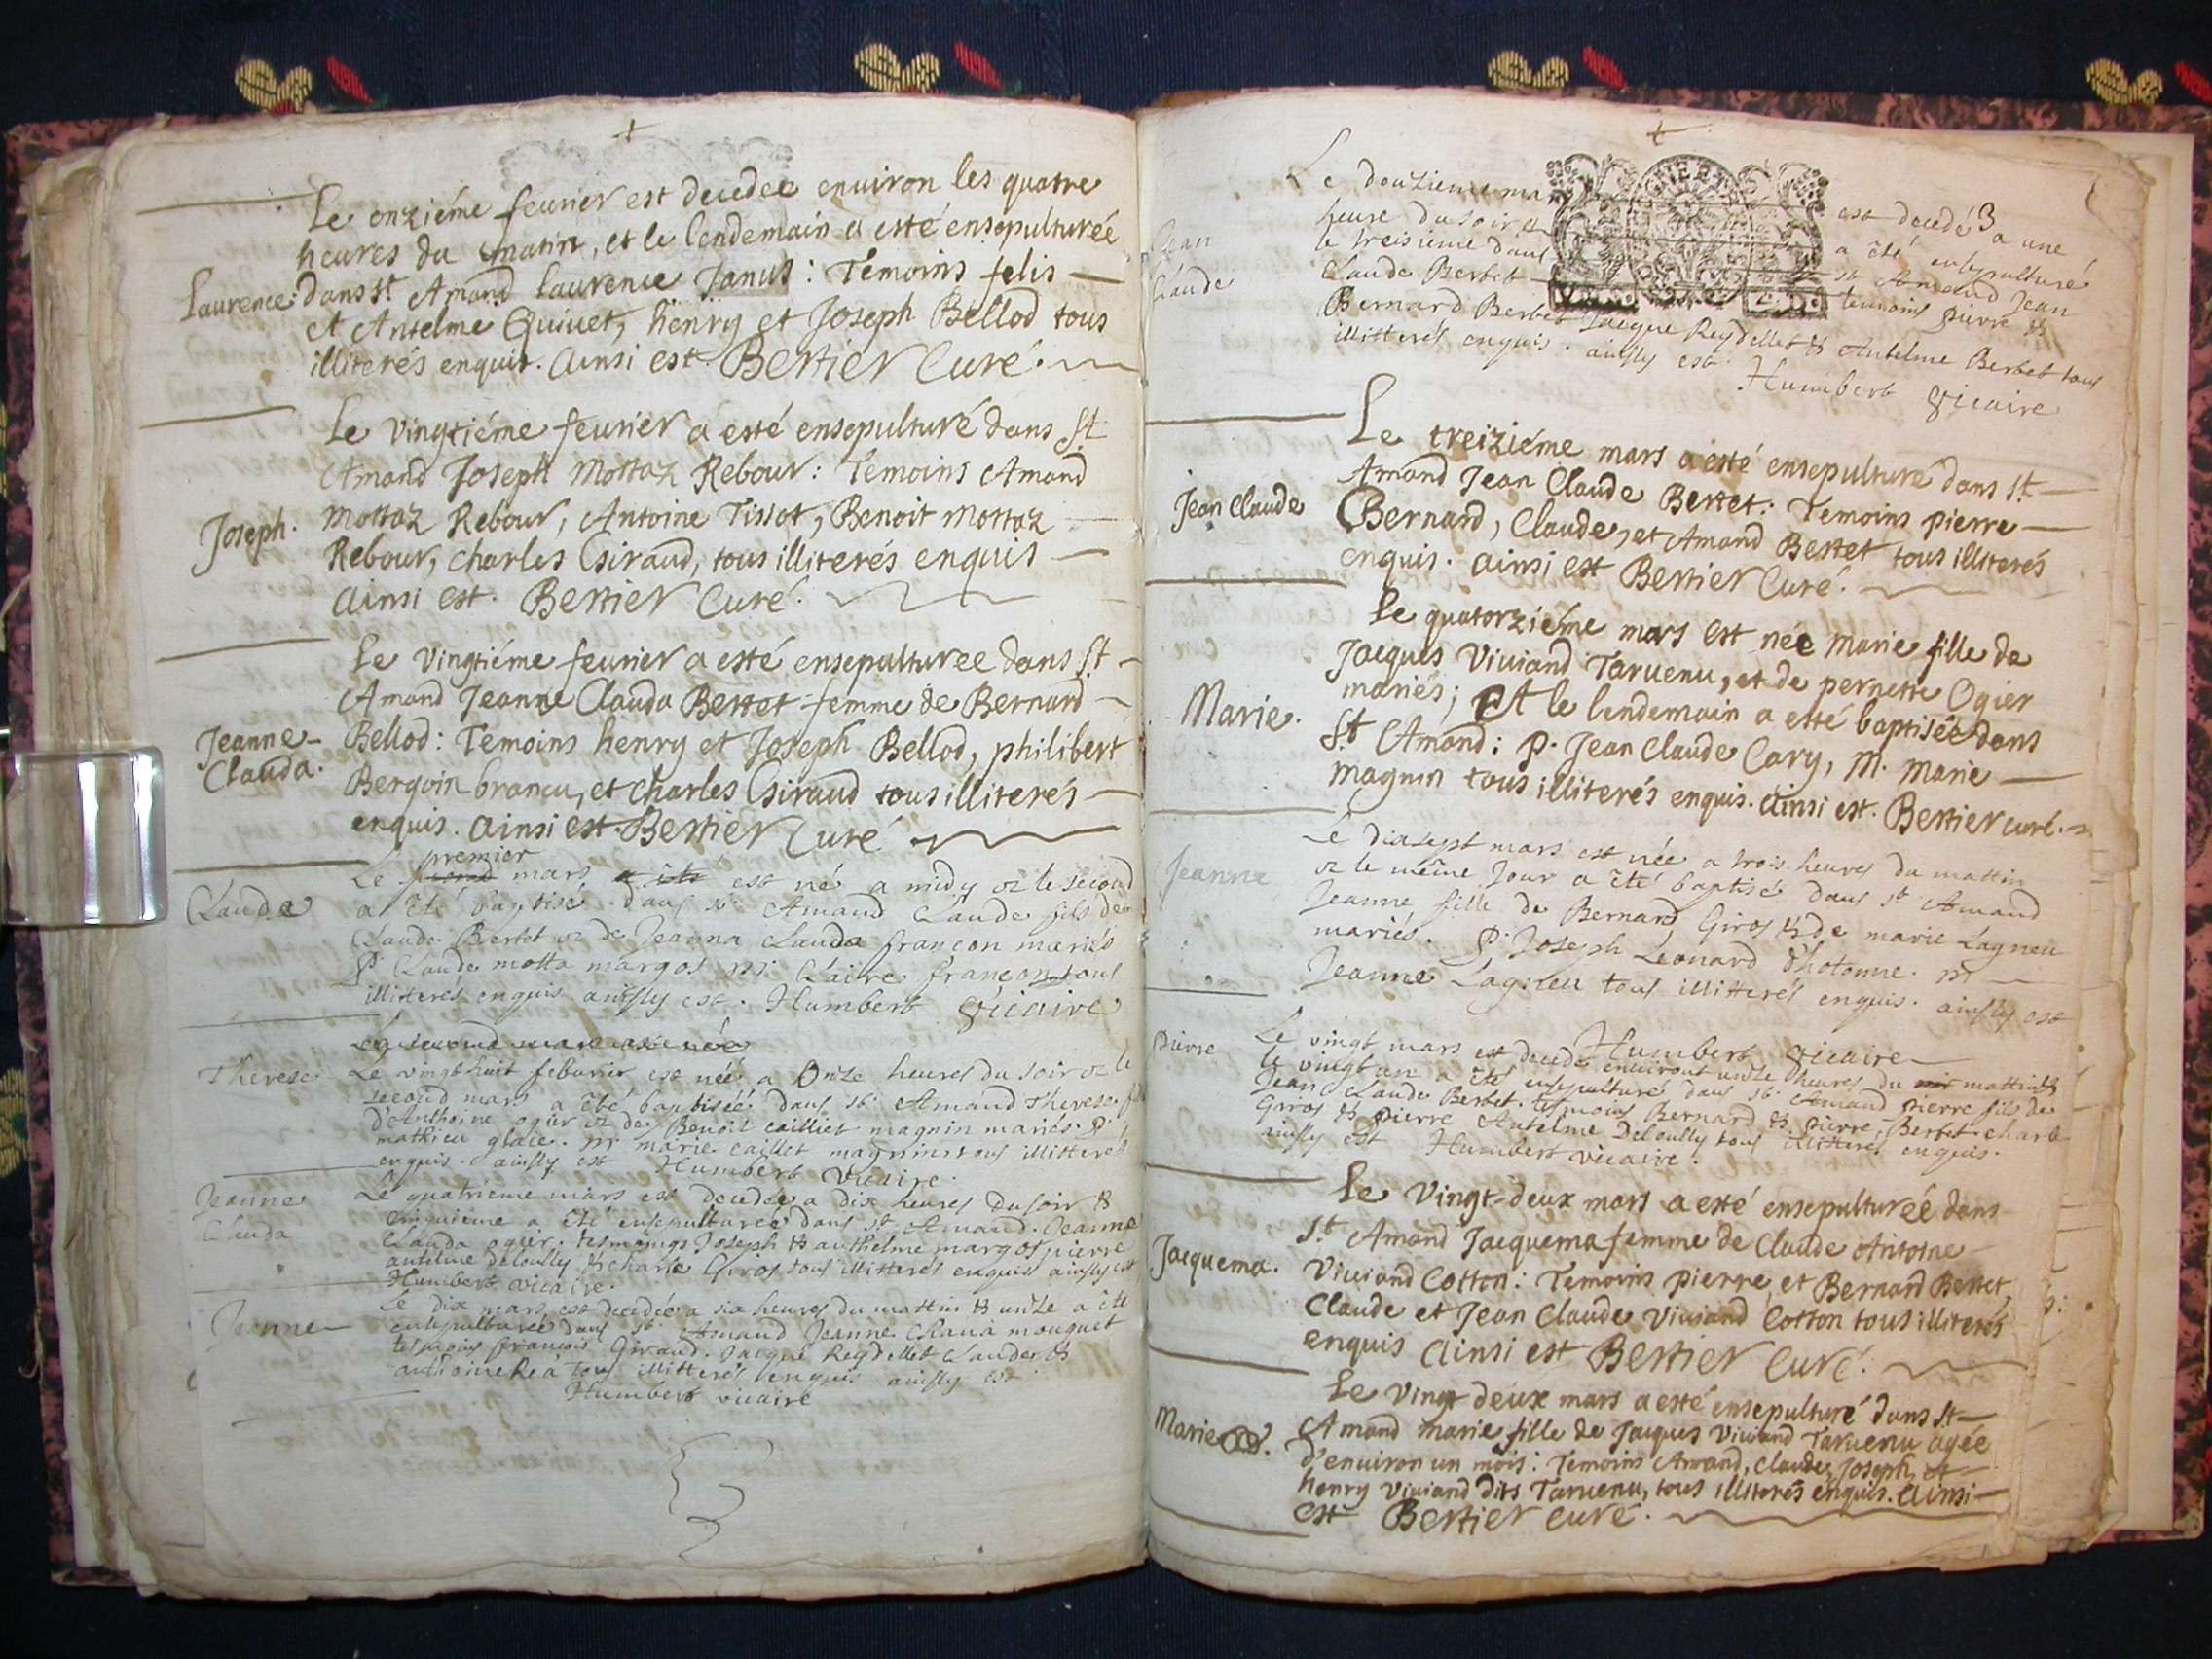 Le onziéme feurier est decedeé enuiron les quatre
heures du matin, et le lendemain a esté ensepulturée
Laurence. dans st Amand laurence Janus : Temoins felis
et Antelme Quiuet, henry et Joseph Bellod tous
illiterés enquis. Ainsi est. Bertier Curé.
Le vingtiéme feurier a esté ensepulturé dans St
Amand Joseph Mottaz Rebour : Temoins Amand
Joseph. Mottaz Rebour, Antoine Tissot, Benoit Mottaz
Rebour, charles Giraud, tous illiterés enquis
Ainsi est. Bertier Curé.
Le vingtiéme feurier a esté ensepulturée dans St
Amand Jeanne Clauda Bertet femme de Bernard
Jeanne Clauda. Bellod : Temoins henry et Joseph Bellod, philibert
Bergoin brancu, et charles Giraud tous illiterés
enquis. Ainsi est. Bertier Curé
premier
Le second mars a été est né a midy et le second
Claude a été baptisé dans st. Amand Claude fils de
Claude Bertet et de Jeanna Clauda françon mariés
P. Claude motta margos m. Claire françon tous
illitterés enquis ainsy est. Humbert vicaire
Le second mars est née
Therese Le vingthuit feburier est née a Onze heures du soir et le
second mars a été baptisée dans st. Amand Therese
d'Anthoine ogier et de Benoite cailliet magnin mariés. P.
mathieu glace. m. marie caillet magnin tous illitterés
enquis. ainsy est Humbert vicaire.
Jeanne Clauda Le quatrieme mars est decedée a dix heures du soir &
cinquieme a été ensepulturée dans st. Amand. Jeanne
Clauda ogier. tesmoings Joseph & anthelme margos pierre
antelme deloully & charle Giros tous illitterés enquis ainsy est
Humbert vicaire.
Jeanne Le dix mars est decedée a six heures du mattin & unze a été
ensepulturée dans st. Amand Jeanne Claua mouguet
tesmoins françois Giraud. Jacque Reydellet Claude &
anthoine Rea tous illitterés enquis ainsy est
Humbert vicaire
3
Le douzieme mars est decedé a une
Jean Claude heure du soir & a été ensepulturé
le treisieme dans st Amand Jean
Claude Berbet temoins pierre &
Bernard Berbet Jacque Reydellet & Antelme Berbet tous
illitterés enquis. ainsy est. Humbert vicaire
Le treiziéme mars a esté ensepulturé dans St
Amand Jean Claude Bertet : Temoins pierre
Jean Claude Bernard, Claude, et Amand Bertet tous illiterés
enquis. ainsi est Bertier Curé.
Le quatorziéme mars est née Marie fille de
Jacques Viuiand Taruenu, et de pernette Ogier
Marie. mariés ; et le lendemain a esté baptisée dans
St Amand : p. Jean Claude Cary, M. Marie
Magnin tous illiterés enquis. Ainsi est. Bertier curé.
Le dixsept mars est née a trois heures du mattin
Jeanne et le même Jour a été baptisé dans st Amand
Jeanne fille de Bernard Giros & de marie Lagneu
mariés. P. Joseph Leonard d'hotonne. m
Jeanne Lagneu tous illitterés enquis. ainsy est
Humbert vicaire
pierre Le vingt mars est decedé environt unze heures du soir mattin &
le vingt un a été ensepulturé dans st. Amand pierre fils de
Jean Claude Berbet. tesmoins Bernard & pierre, Berbet charle
Giros & pierre Antelme Deloully tous illitterés enquis.
ainsy est Humbert vicaire.
Le vingt-deux mars a esté ensepulturée dans
St Amand Jacquema femme de Claude Antoine
Jacquema. Viuiand Cotton : Temoins pierre, et Bernard Bertet,
Claude et Jean Claude Viuiand Cotton tous illiterés
enquis Ainsi est Bertier Curé.
Le vingt deux mars a esté ensepulturé dans St
Marie. Amand marie fille de Jacques Viuiand Taruenu agée
d'enuiron un mois : Temoins Amand, claude, Joseph, et
henry Viuiand dits Taruenu, tous illiterés enquis. Ainsi
est Bertier curé.